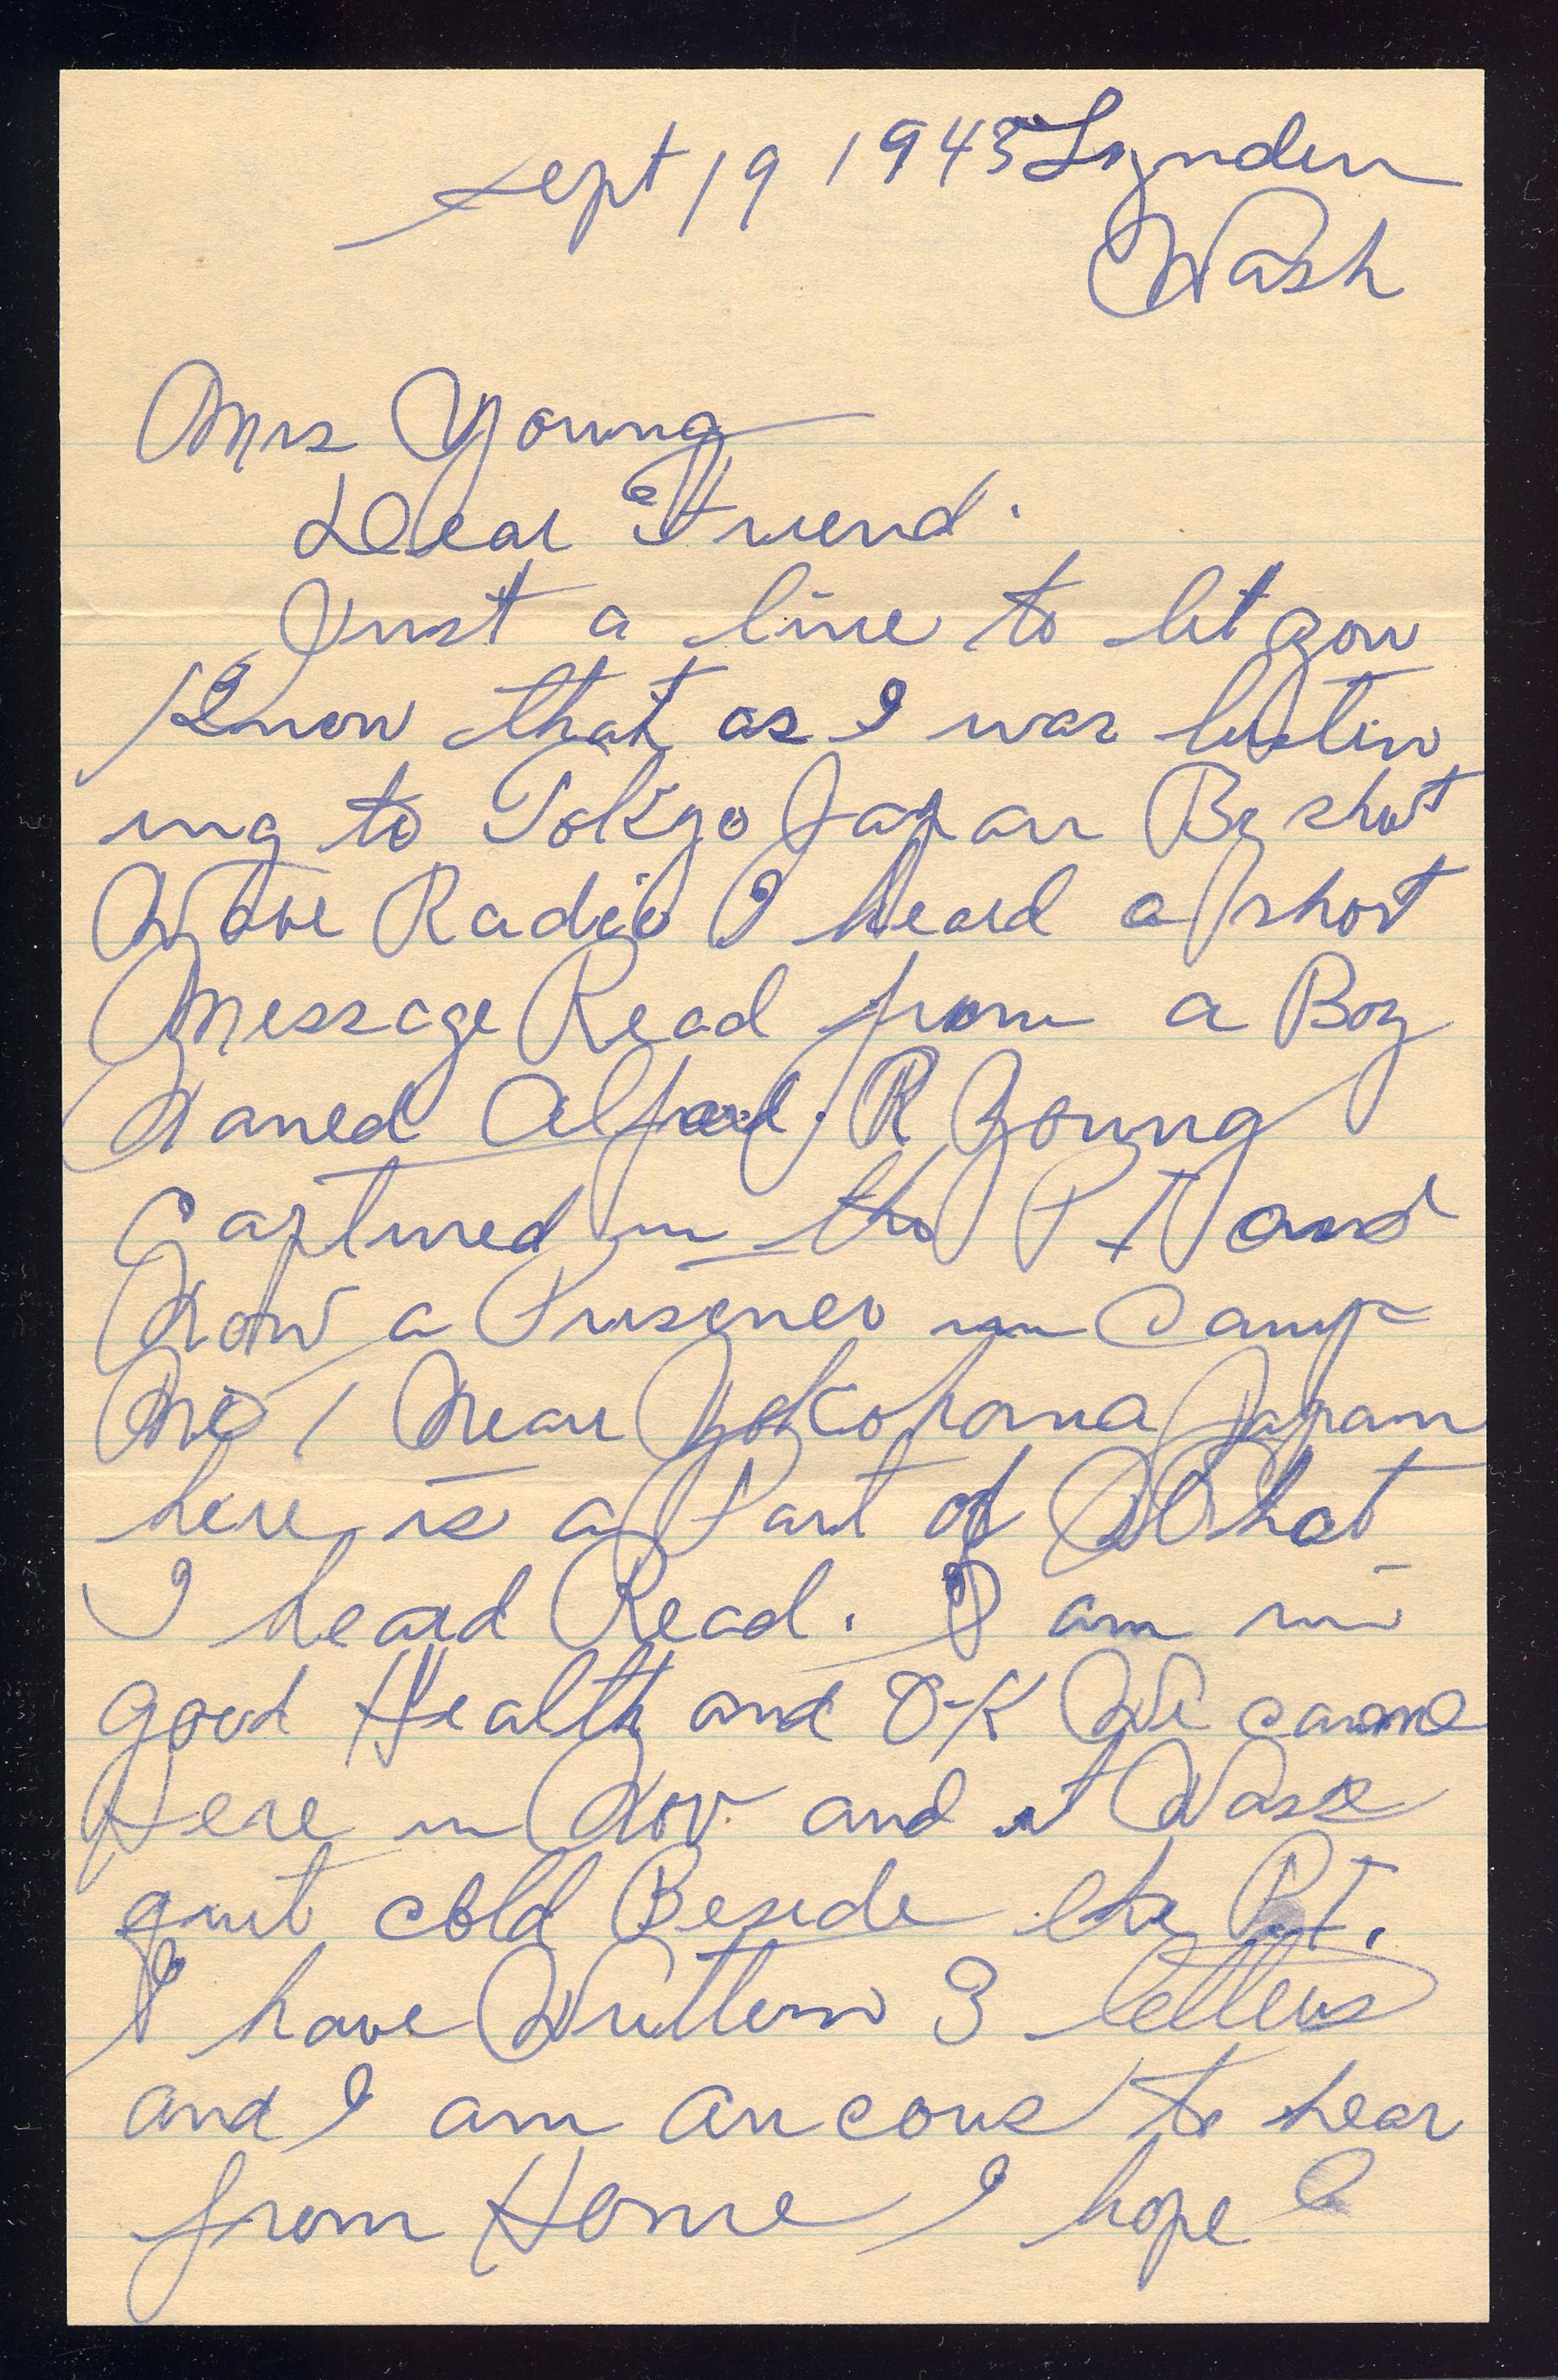 Sept 19 1943 Lynden
Wash
Mrs Young
Dear Friend.
Just a line to let you
Know that as I was listin
ing to Tokyo Japan By short
Wave Radio I heard a short
Message Read from a Boy
Naned Alfred. R Young
Captured in the P I and
Now a Prisoner in Camp
No 1 Near Yokohoma Japan
here is a Part of What
I heard Read. I am in
good Health and O-K We came
Here in Nov. and it Was
quit cold Beside the P.I.
I have Written 3 letters
and I am ancous to hear
from Home I hope